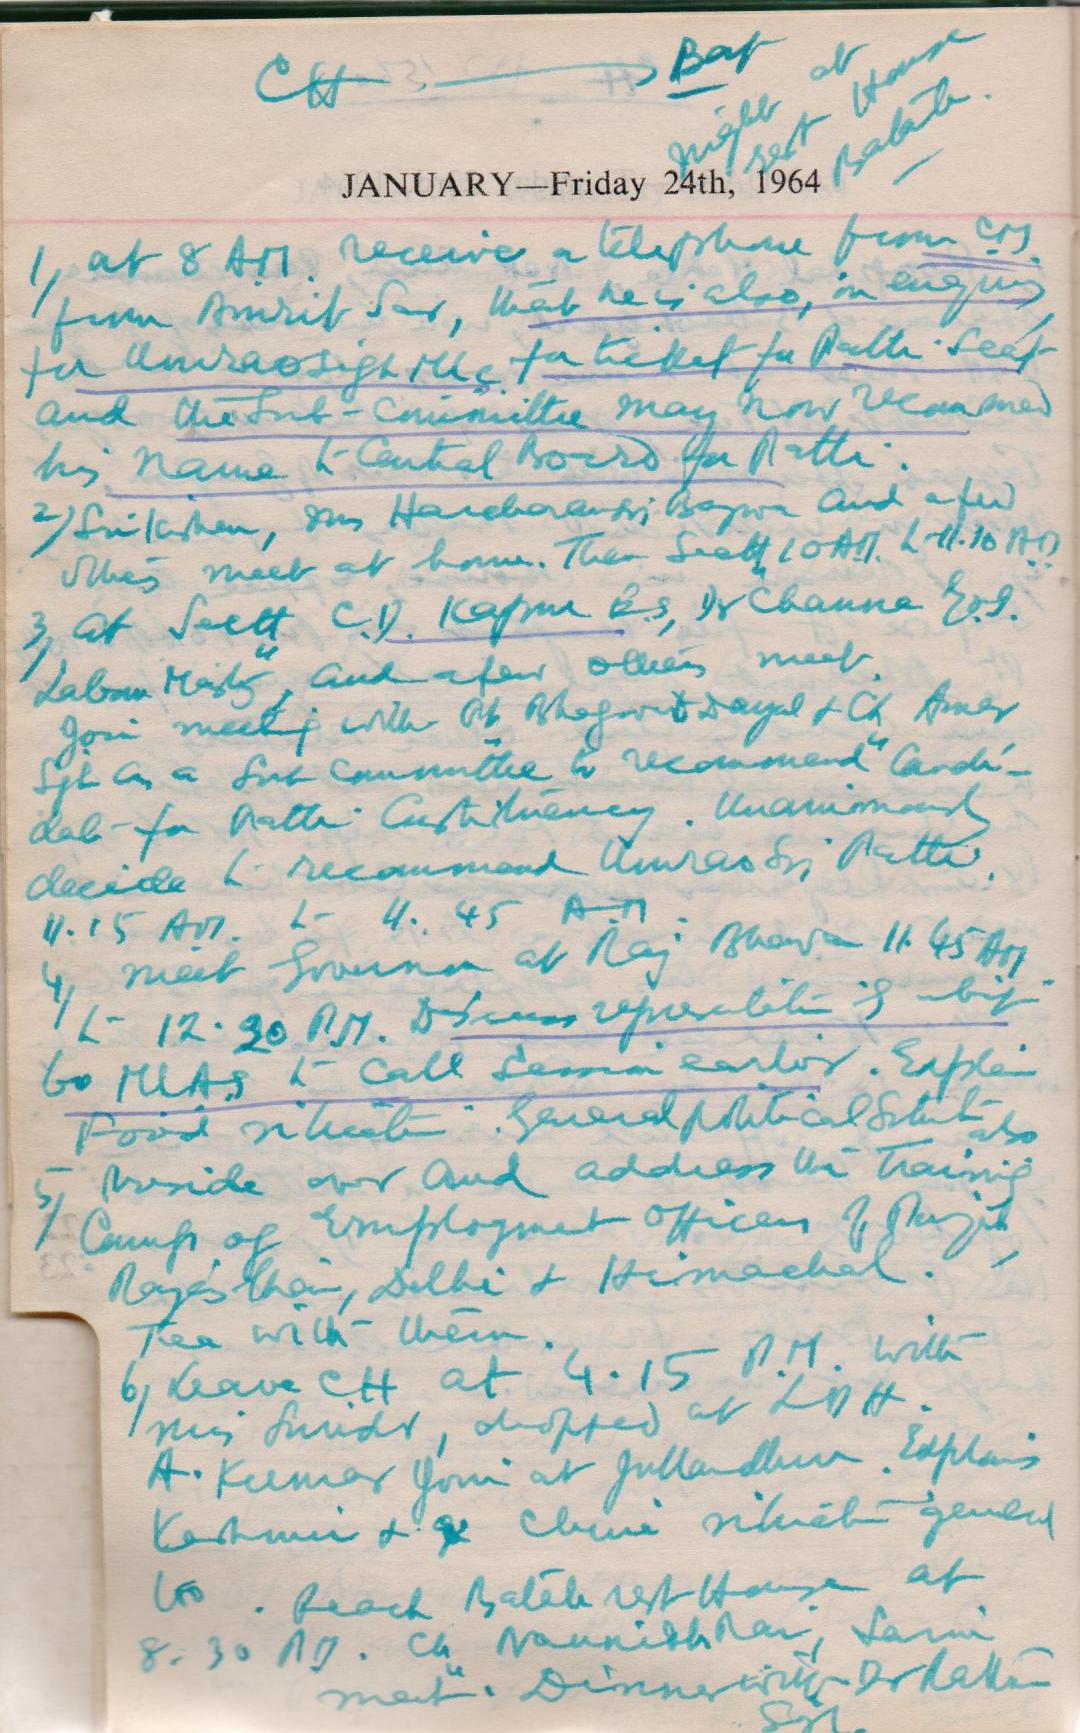 CH → Bat
night at
rest House
Batala.
JANUARY—Friday 24th, 1964
1, at 8 A.M. receive a telephone from C.M.
from Amrit Sar, that he is also, in
for Umrao Sigh MLC for ticket for Patti Seat
and the Sub-Committee may now recommend
his name to Central Board for Patti.
2) Sri Kishen, Mrs Bajwa and a few
others meet at home. Then Sectt 10 A.M. to 11.10 A.M.
3, at Sectt C.D. Kapur Dr Channa
Labour and a few others meet.
Join meeting with Pt. Bhagwat Dayal & Ch Amar
Sgh as a Sub Committee to recommend Candi-
date for Patti Constituency. Unanimously
decide to recommend Umrao Patti.
11.15 A.M. to 11.45 A.M.
4, meet Governor at Raj Bhawan 11.45 A.M.
to 12.30 P.M. Discuss
60 MLAs to call Session earlier. Explain
Food situation. General political situation also
5, Preside over and address the Training
Camp of Employment Officers of Punjab,
Rajasthan, Delhi & Himachal.
Tea with them.
6, Leave CH at 4.15 P.M. with
dropped at LDH.
A. Kumar join at Jullandhur. Explains
Kashmir & China situation general
too. Reach Batala rest House at
8.30 P.M. Ch Saini
meet. Dinner with Dr Rattan
Sgh.